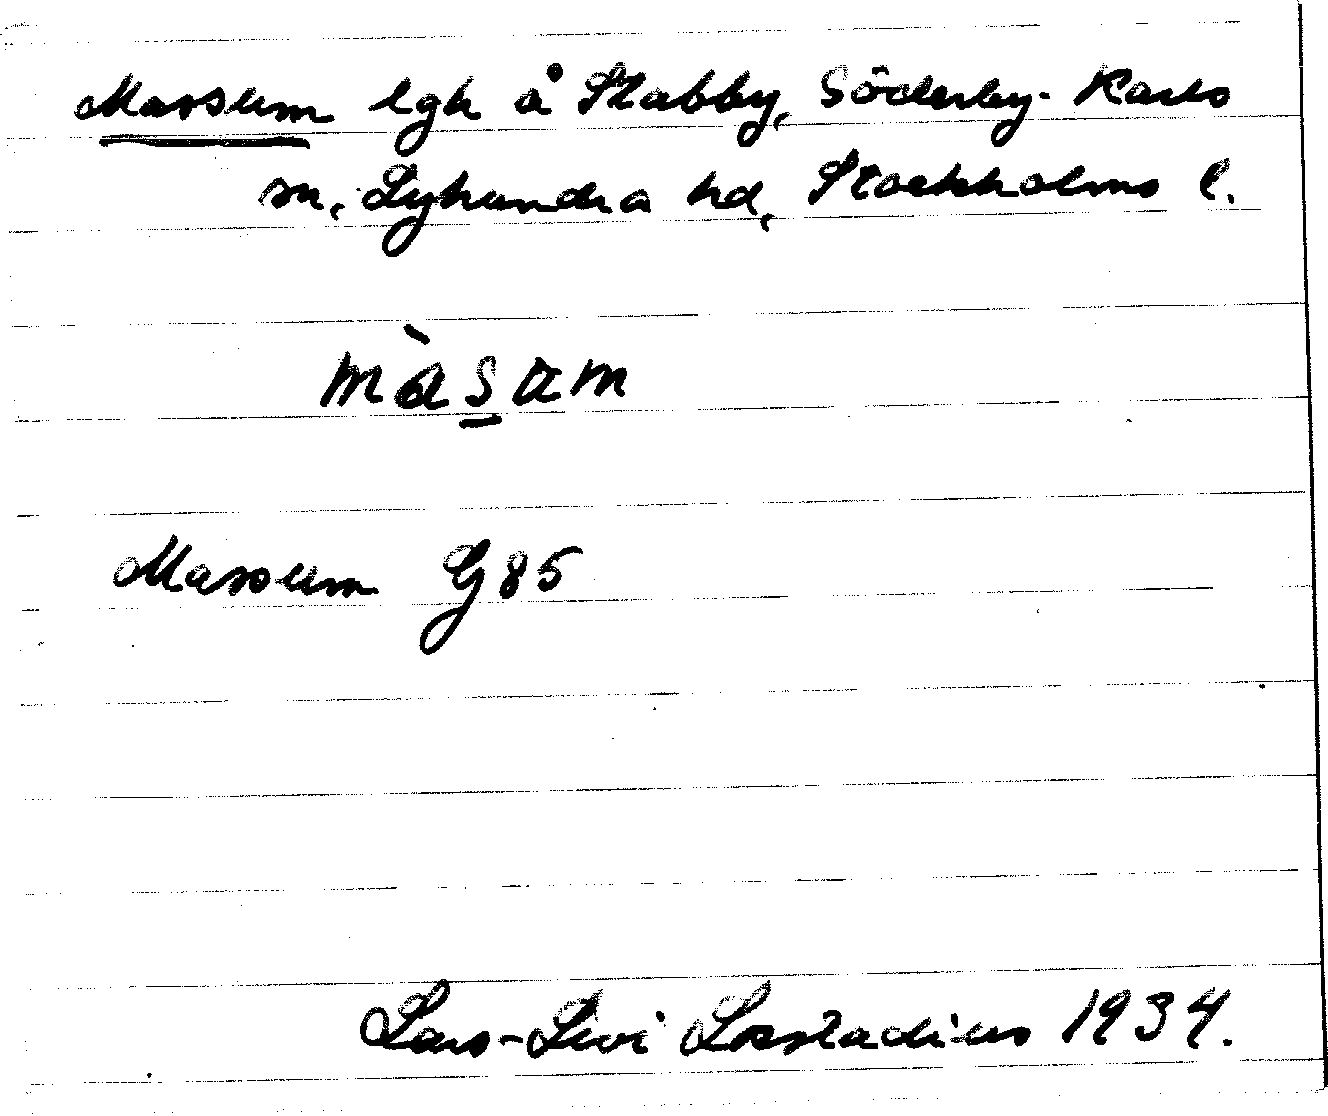 Massum lgh å Stabby, Söderby-Karls
sn, Lyhundra hd, Stockholms l.
màsam
Massum G85
Lars-Levi Læstadius 1934.